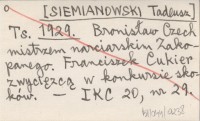 [SIEMIANOWSKI Tadeusz]
Ts. 1929. Bronisław Czech
mistrzem narciarskim Zako-
panego. Franciszek Cukier
zwycięzcą w konkursie sko-
ków. — IKC 20, nr 29.